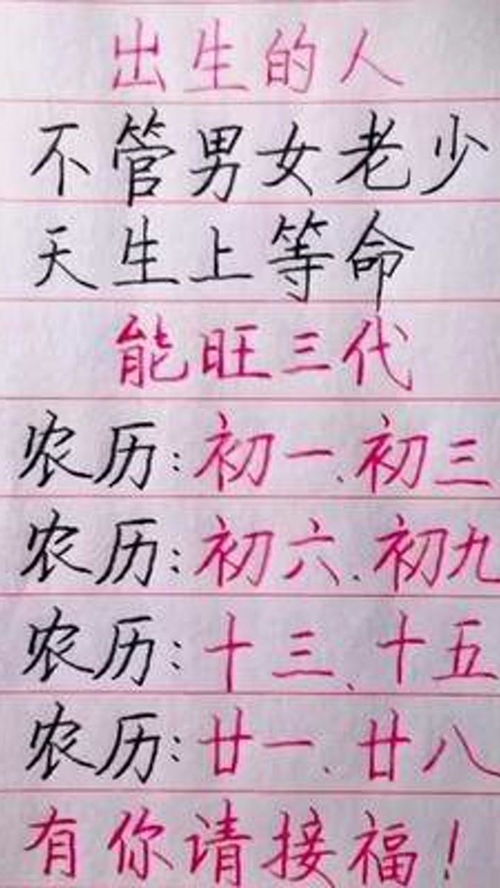 出生的人
不管男女老少
天生上等命
能旺三代
农历:初一、初三
农历:初六、初九
农历:十三、十五
农历:廿一、廿八
有你请接福!